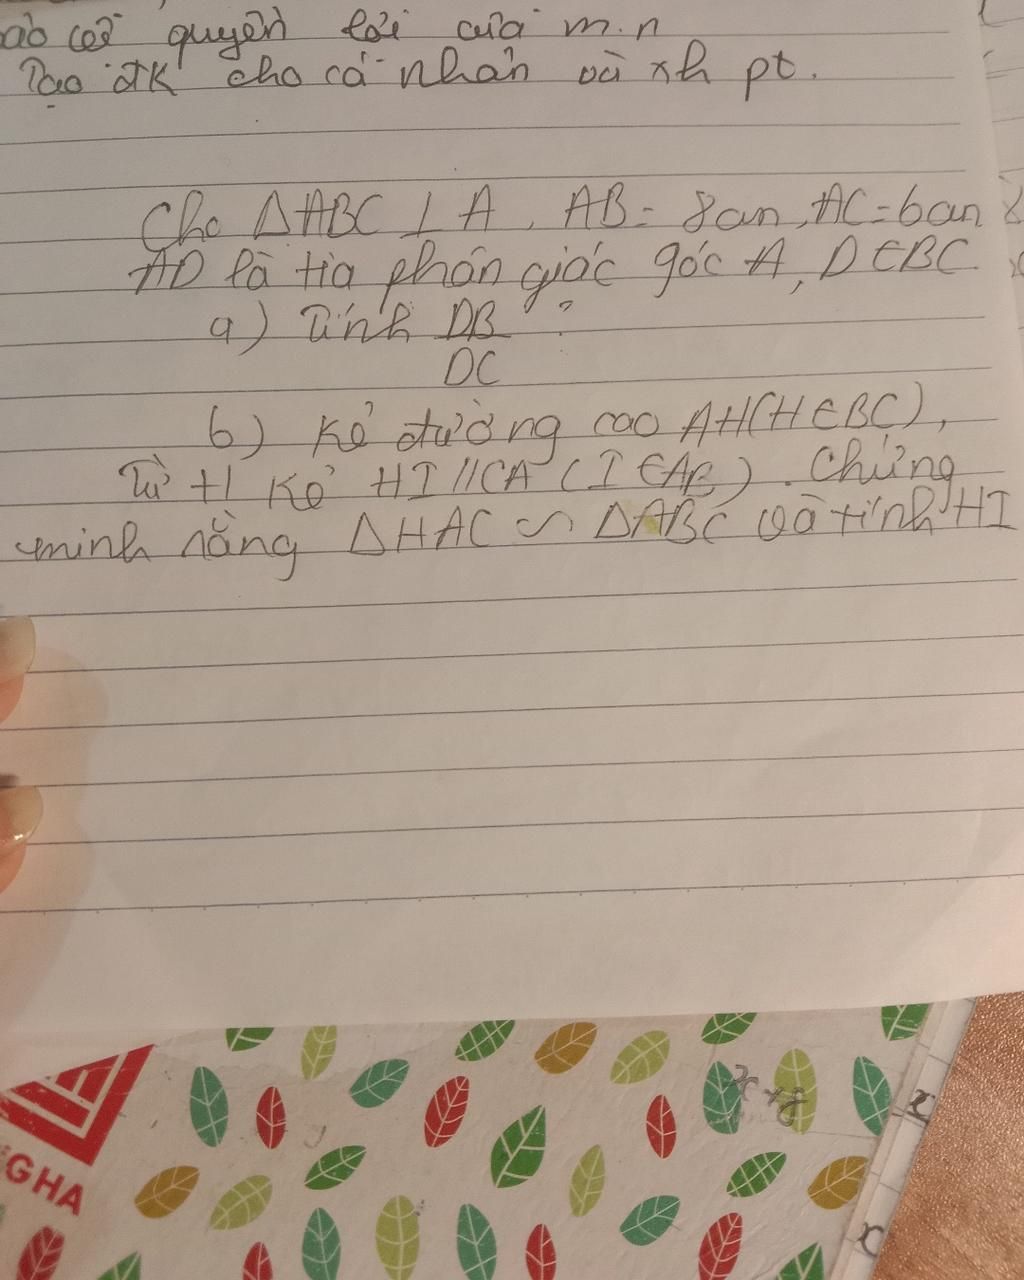 quyền lợi của m.n
Tạo đK cho cá nhân và xh pt.
Cho ΔABC ⊥ A, AB = 8cm, AC = 6cm
AD là tia phân giác góc A, D ∈ BC
a) Tính DB ?
DC
b) Kẻ đường cao AH (H ∈ BC),
Từ H Kẻ HI // CA (I ∈ AB). Chứng
minh rằng ΔHAC ∽ ΔABC và tính HI
x+8
x
GHA
x